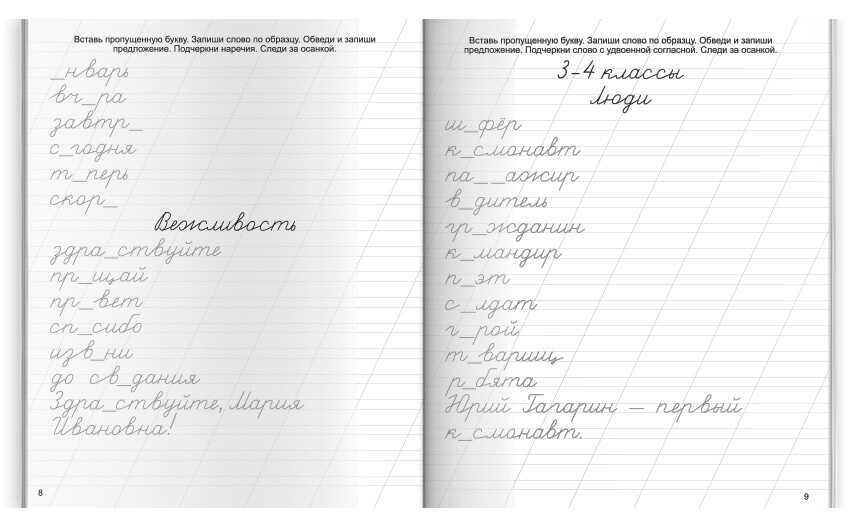 Вставь пропущенную букву. Запиши слово по образцу. Обведи и запиши
предложение. Подчеркни наречия. Следи за осанкой.
_нварь
вч_ра
завтр_
с_годня
т_перь
скор_
Вежливость
здра_ствуйте
пр_щай
пр_вет
сп_сибо
изв_ни
до св_дания
Здра_ствуйте, Мария
Ивановна!
8
Вставь пропущенную букву. Запиши слово по образцу. Обведи и запиши
предложение. Подчеркни слово с удвоенной согласной. Следи за осанкой.
3-4 классы
Люди
ш_фёр
к_смонавт
па_ _ажир
в_дитель
гр_жданин
к_мандир
п_эт
с_лдат
г_рой
т_варищ
р_бята
Юрий Гагарин — первый
к_смонавт.
9